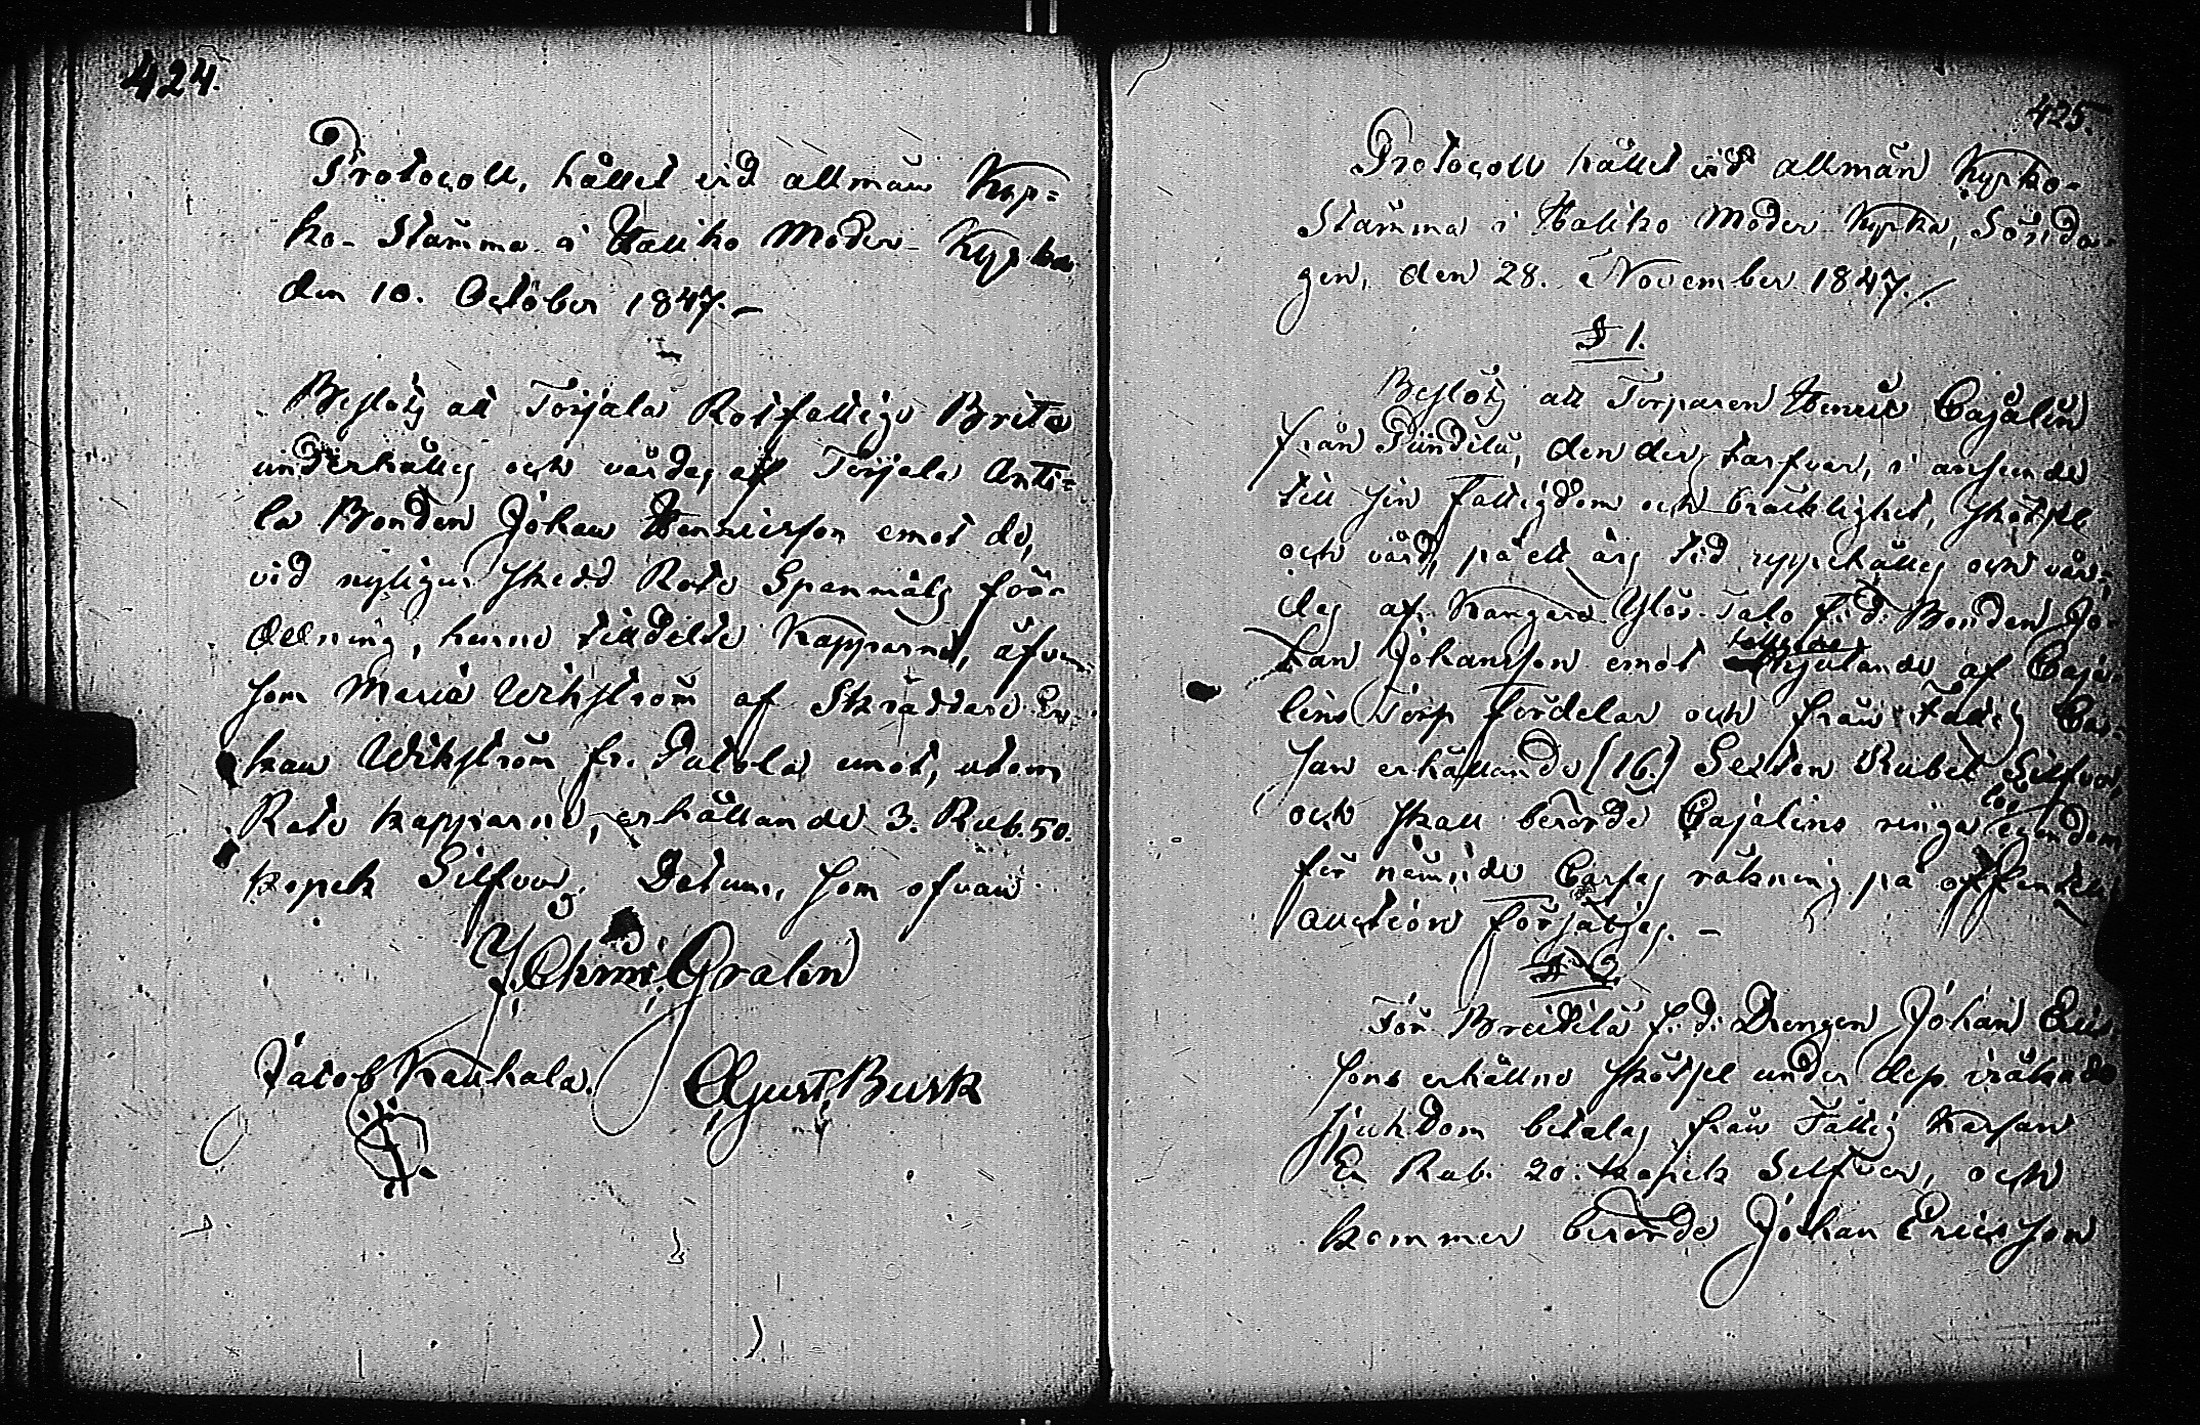 424.
Protocoll, hållet vid allmän Kyr=
ko-Stämma i Haliko Moder-Kyrka
den 10. October 1847.-
Beslöts att Torjala Rotfattige Brita
underhålles och vårdas af Torjala Antti=
la Bonden Johan Henricsson emot de,
vid nyligen skedd Rote Spanmåls för=
delning, henne tilldelte Kapparne, äfven
som Maria Wikström af Skräddare En=
kan Wikström fr. Patola emot, utom
Rote kapparne, erhållande 3. Rub. 50.
kopek Silfver. Datum, som ofvan
Chrn: Gralin
Jacob Kaukala. Agust Busk
425.
Protocoll hållet vid allmän Kyrko-
Stämma i Haliko Moder Kyrka, Sönda-
gen, den 28. November 1847./.
§ 1.
Beslöts att Torparen Henric Cajalin
från Pundila, den der tarfvar, i anseende
till sin fattigdom och bräcklighet, skötsel
och vård, på ett års tid uppehålles och vår-
das af Kangare Ylös-Talo f. d. Bonden Jo-
han Johansson emot tillfallande af Caja-
lins Torp fördelar och från Fattig Cas-
san erhållande (16.) Sexton Rubel Silfver,
och skall berörde Cajalins ringa lös egendom
för nämnde Cassas räkning på offentelig
auction försäljas. -
§ 2.
För Breitilä f. d. Drengen Johan Eric
sons erhållne skötsel under dess iråkade
sjukdom betalas från Fattig Kassan
En Rub. 20. kopek Silfver, och
kommer berörde Johan Ericsson